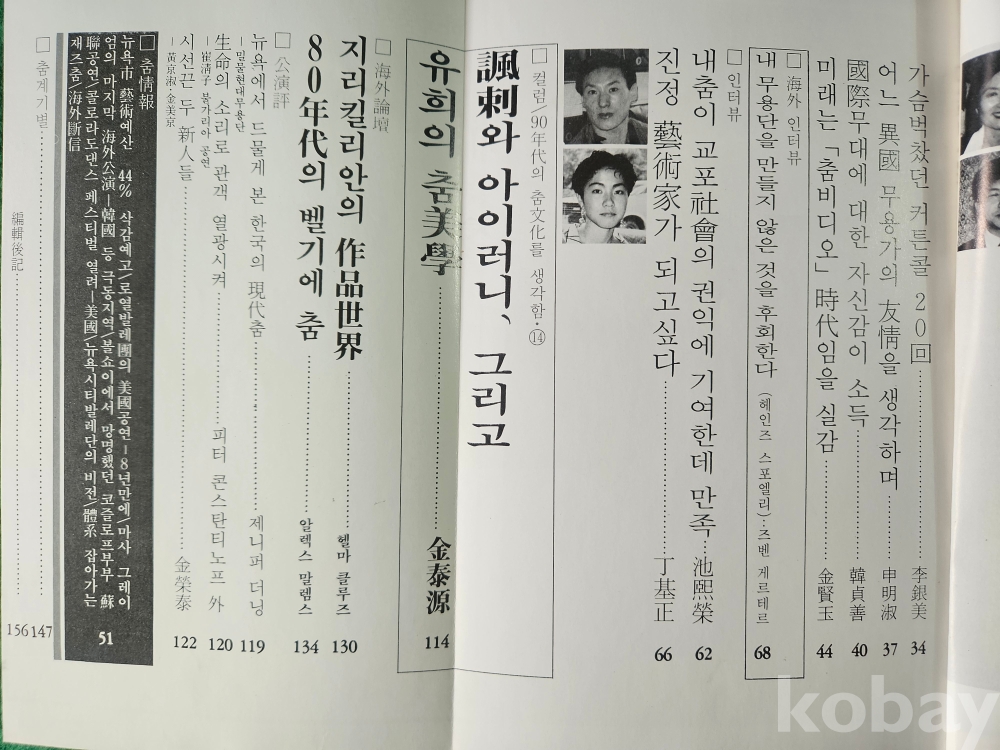 가슴벅찼던 커튼콜 20回 李銀美 34
어느 異國 무용가의 友情을 생각하며 申明淑 37
國際무대에 대한 자신감이 소득 韓貞善 40
미래는「춤비디오」時代임을 실감 金賢玉 44
□ 海外 인터뷰
내 무용단을 만들지 않은 것을 후회한다 (헤인즈 스포엘리)·즈벤 게르테르 68
□ 인터뷰
내춤이 교포社會의 권익에 기여한데 만족 池熙榮 62
진정 藝術家가 되고싶다 丁基正 66
□ 컬럼/90年代의 춤文化를 생각함·⑭
諷刺와 아이러니, 그리고
유희의 춤美學 金泰源 114
□ 海外論壇
지리킬리안의 作品世界 헬마 클루즈 130
80年代의 벨기에 춤 알렉스 말렘스 134
□ 公演評
뉴욕에서 드물게 본 한국의 現代춤 제니퍼 더닝 119
－밀물현대무용단
生命의 소리로 관객 열광시켜 피터 콘스탄티노프 外 120
－崔淸子 불가리아 공연
시선끈 두 新人들 金榮泰 122
－黃京淑·金美京
□ 춤情報
뉴욕市 藝術예산 44% 삭감예고/로열발레團의 美國공연－8년만에/마사 그레이
엄의 마지막 海外公演－韓國 등 극동지역/볼쇼이에서 망명했던 코즐로프부부 蘇
聯공연/콜로라도댄스 페스티벌 열려－美國/뉴욕시티발레단의 비전/體系 잡아가는
재즈춤/海外斷信 51
□ 춤계기별 147
編輯後記 156
kobay